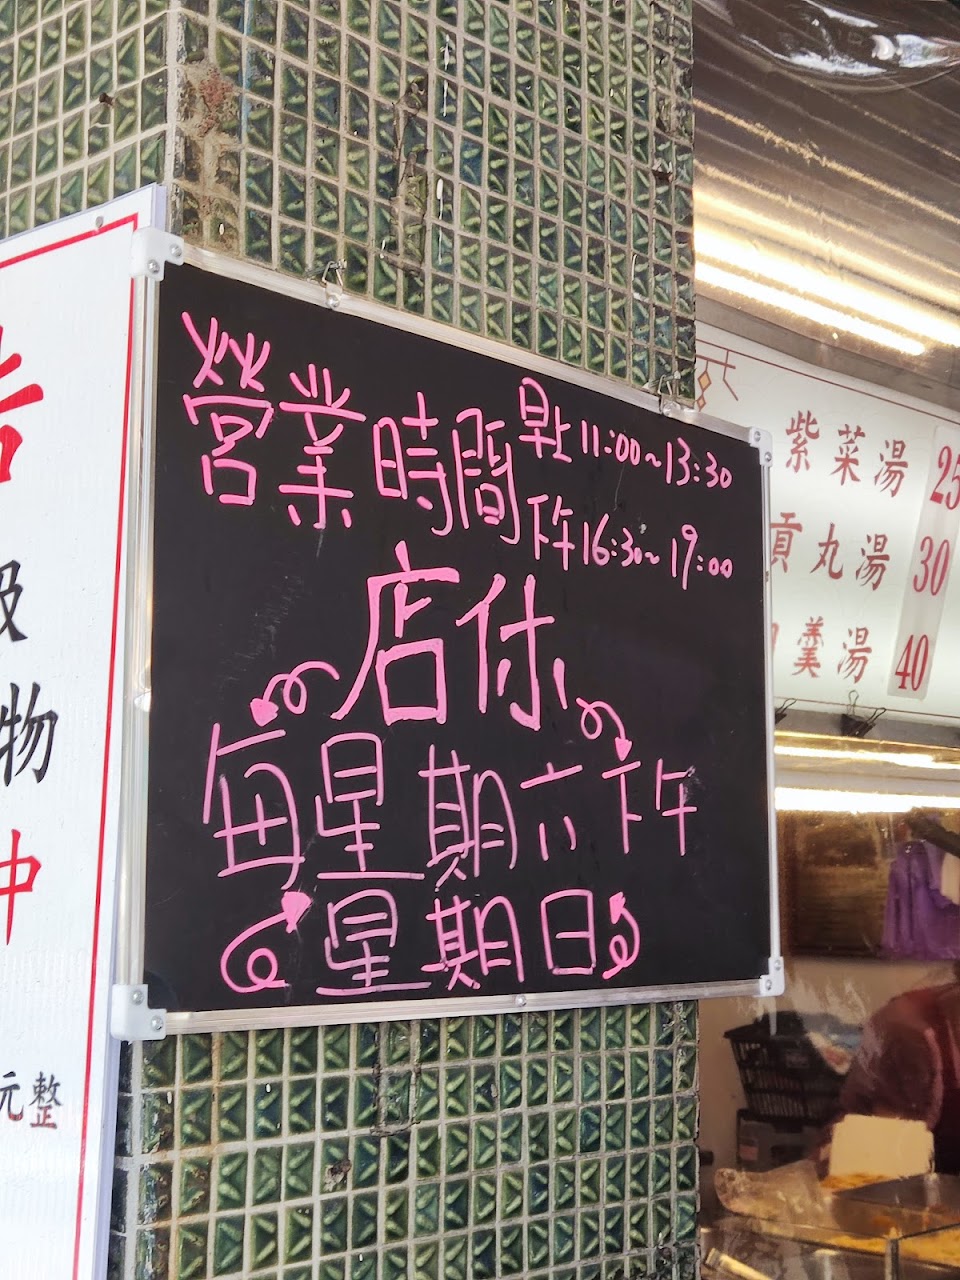 營業時間
早上11:00~13:30
下午16:30~19:00
店休
每星期六下午
星期日
紫菜湯 25
貢丸湯 30
羹湯 40
物
中
元整